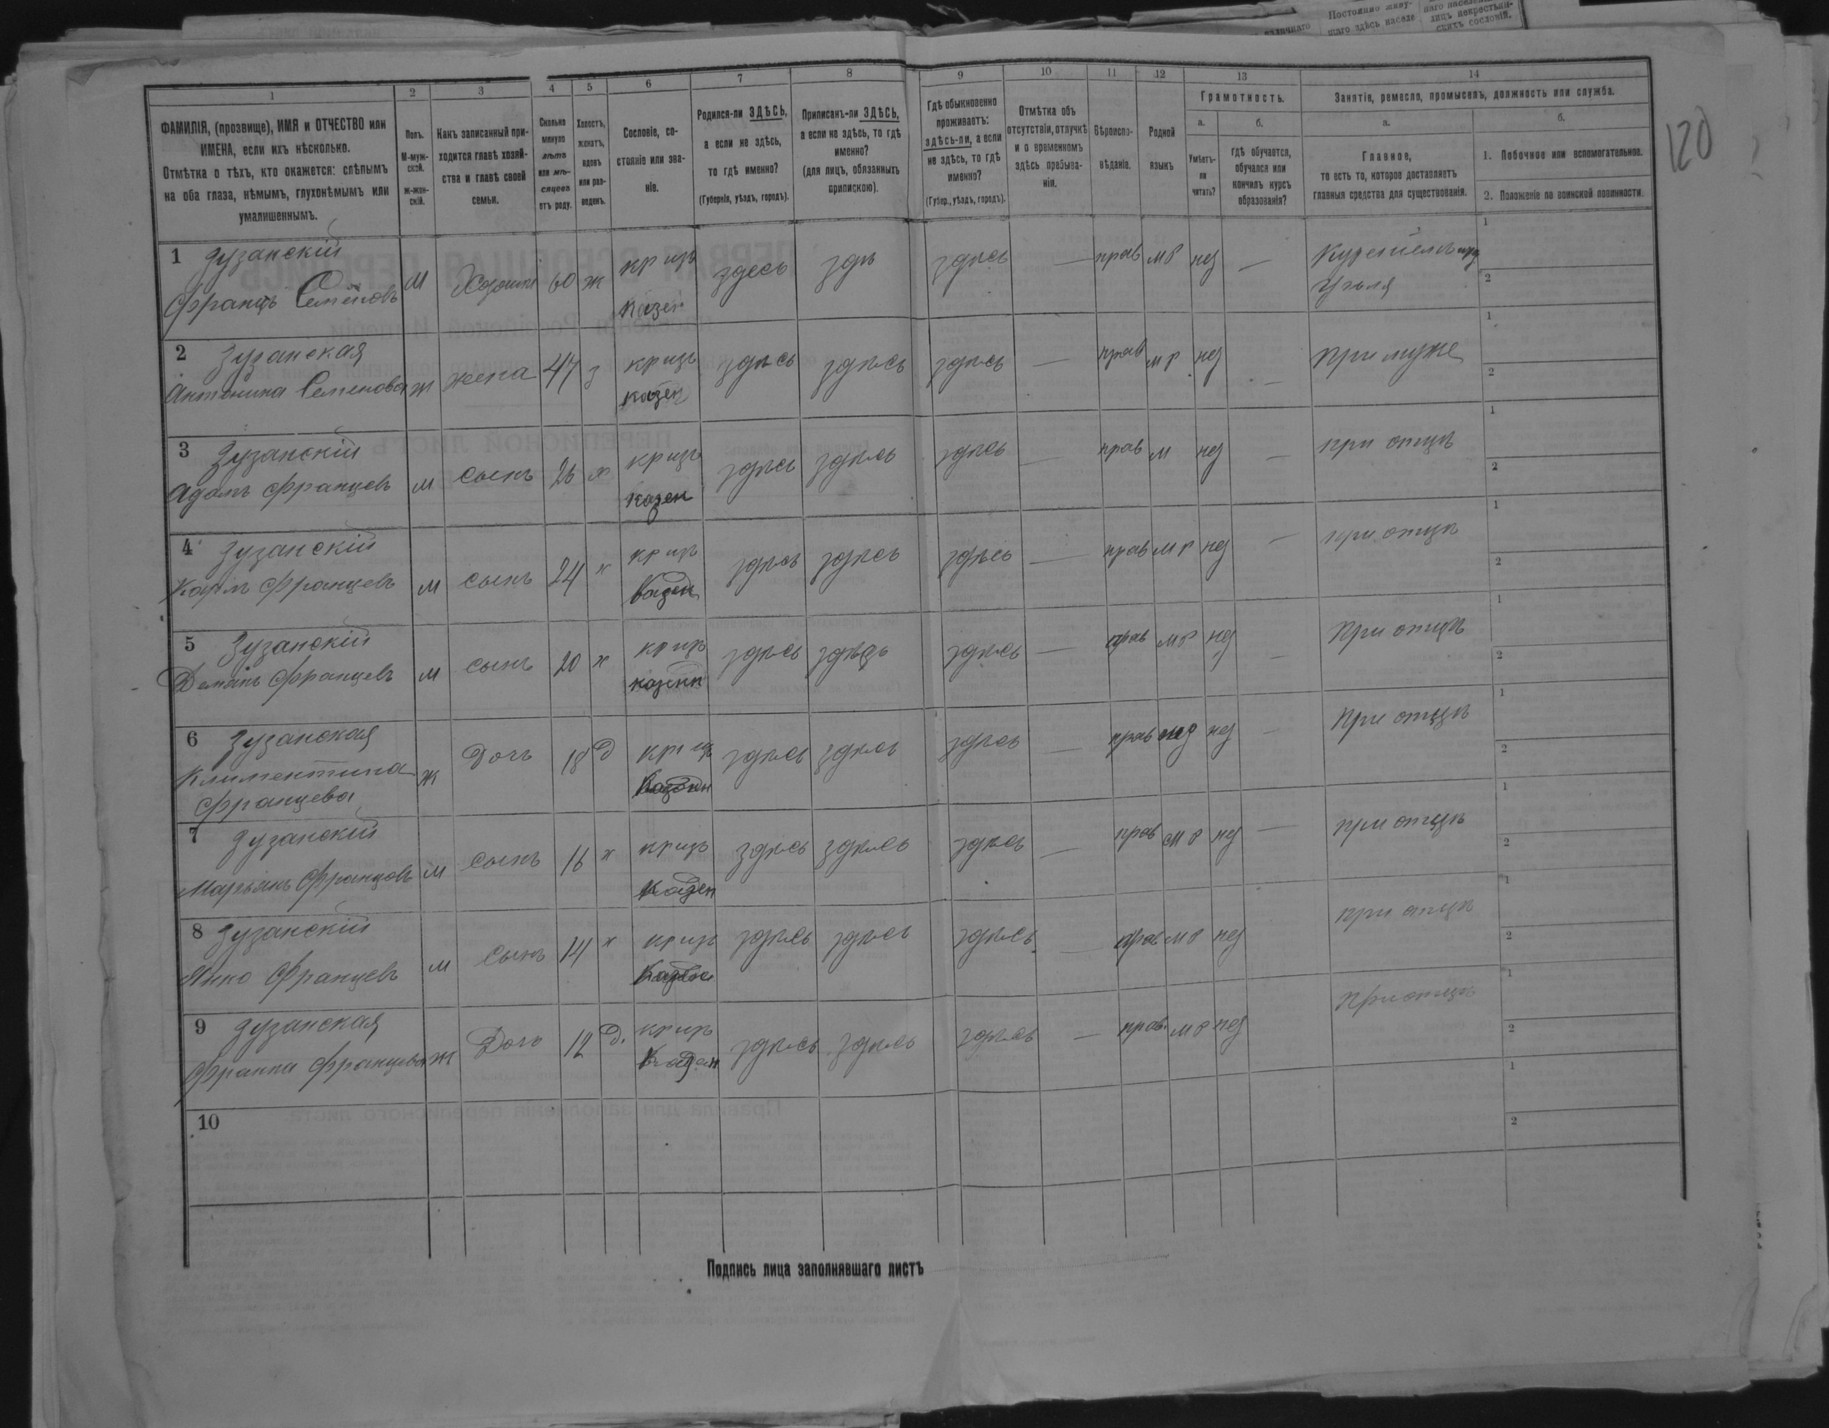 Постоянно живу-
щаго здѣсь населе
наго населе
лицъ некрестьян-
скихъ сословій.
120
1
2
3
4
5
6
7
8
9
10
11
12
13
14
ФАМИЛІЯ, (прозвище), ИМЯ и ОТЧЕСТВО или
ИМЕНА, если ихъ нѣсколько.
Отмѣтка о тѣхъ, кто окажется: слѣпымъ
на оба глаза, нѣмымъ, глухонѣмымъ или
умалишеннымъ.
Полъ.
М-муж-
ской.
Ж-жен-
скій.
Какъ записанный при-
ходится главѣ хозяй-
ства и главѣ своей
семьи.
Сколько
минуло
лѣтъ
или мѣ-
сяцевъ
отъ роду.
Холостъ,
женатъ,
вдовъ
или раз-
веденъ.
Сословіе, со-
стояніе или зва-
ніе.
Родился-ли ЗДѢСЬ,
а если не здѣсь,
то гдѣ именно?
(Губернія, уѣздъ, городъ).
Приписанъ-ли ЗДѢСЬ,
а если не здѣсь, то гдѣ
именно?
(для лицъ, обязанныхъ
припискою).
Гдѣ обыкновенно
проживаетъ:
здѣсь-ли, а если
не здѣсь, то гдѣ
именно?
(Губер., уѣздъ, городъ).
Отмѣтка объ
отсутствіи, отлучкѣ
и о временномъ
здѣсь пребыва-
ніи.
Вѣроиспо-
вѣданіе.
Родной
языкъ
Грамотность.
а.
Умѣетъ-
ли
читать?
б.
Гдѣ обучается,
обучался или
кончилъ курсъ
образованія?
Занятіе, ремесло, промыселъ, должность или служба.
а.
Главное,
то есть то, которое доставляетъ
главныя средства для существованія.
б.
1. Побочное или вспомогательное.
2. Положеніе по воинской повинности.
1 Зузанскій
Францъ Семеновъ М Хозяинъ 60 ж крщъ казен здесь здѣ здѣсь — прав м р нѣ —
угля
1
2
2 Зузанская
Антонина Семенова ж жена 47 з крщъ казен здѣсь здѣсь здѣсь — прав м р нѣ — при муже
1
2
3 Зузанскій
Адамъ Францевъ м сынъ 26 х крщъ казен здѣсь здѣсь здѣсь — прав м нѣ — при отцѣ
1
2
4 Зузанскій
Карлъ Францевъ м сынъ 24 х крщъ казен здѣсь здѣсь здѣсь — прав м р нѣ — при отцѣ
1
2
5 Зузанскій
Демянъ Францевъ м сынъ 20 х крщъ казен здѣсь здѣсь здѣсь — прав м р нѣ — При отцѣ
1
2
6 Зузанская
Климентина
Францева ж Дочь 18 д крщъ казен здѣсь здѣсь здѣсь — прав нѣ — При отцѣ
1
2
7 Зузанскій
Марьянъ Францовъ м сынъ 16 х крщъ казен здѣсь здѣсь здѣсь — прав м р нѣ — при отцѣ
1
2
8 Зузанскій
Янко Францевъ м сынъ 14 х крщъ казен здѣсь здѣсь здѣсь — прав м р нѣ при отцѣ
1
2
9 Зузанская
Франка Францева ж Дочь 12 д. крщъ казен здѣсь здѣсь здѣсь — прав. м р нѣ При отцѣ
1
2
10
1
2
Подпись лица заполнявшаго листъ